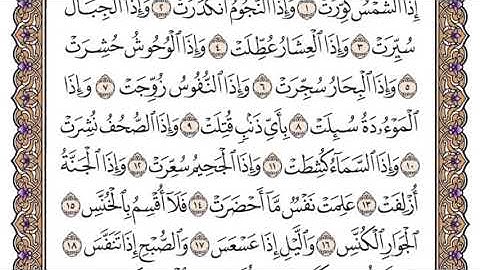 إِذَا ٱلشَّمْسُ كُوِّرَتْ ١ وَإِذَا ٱلنُّجُومُ ٱنكَدَرَتْ ٢ وَإِذَا ٱلْجِبَالُ
سُيِّرَتْ ٣ وَإِذَا ٱلْعِشَارُ عُطِّلَتْ ٤ وَإِذَا ٱلْوُحُوشُ حُشِرَتْ
٥ وَإِذَا ٱلْبِحَارُ سُجِّرَتْ ٦ وَإِذَا ٱلنُّفُوسُ زُوِّجَتْ ٧ وَإِذَا
ٱلْمَوْءُۥدَةُ سُئِلَتْ ٨ بِأَيِّ ذَنۢبٍ قُتِلَتْ ٩ وَإِذَا ٱلصُّحُفُ نُشِرَتْ
١٠ وَإِذَا ٱلسَّمَآءُ كُشِطَتْ ١١ وَإِذَا ٱلْجَحِيمُ سُعِّرَتْ ١٢ وَإِذَا ٱلْجَنَّةُ
أُزْلِفَتْ ١٣ عَلِمَتْ نَفْسٌ مَّآ أَحْضَرَتْ ١٤ فَلَآ أُقْسِمُ بِٱلْخُنَّسِ ١٥
ٱلْجَوَارِ ٱلْكُنَّسِ ١٦ وَٱلَّيْلِ إِذَا عَسْعَسَ ١٧ وَٱلصُّبْحِ إِذَا تَنَفَّسَ ١٨